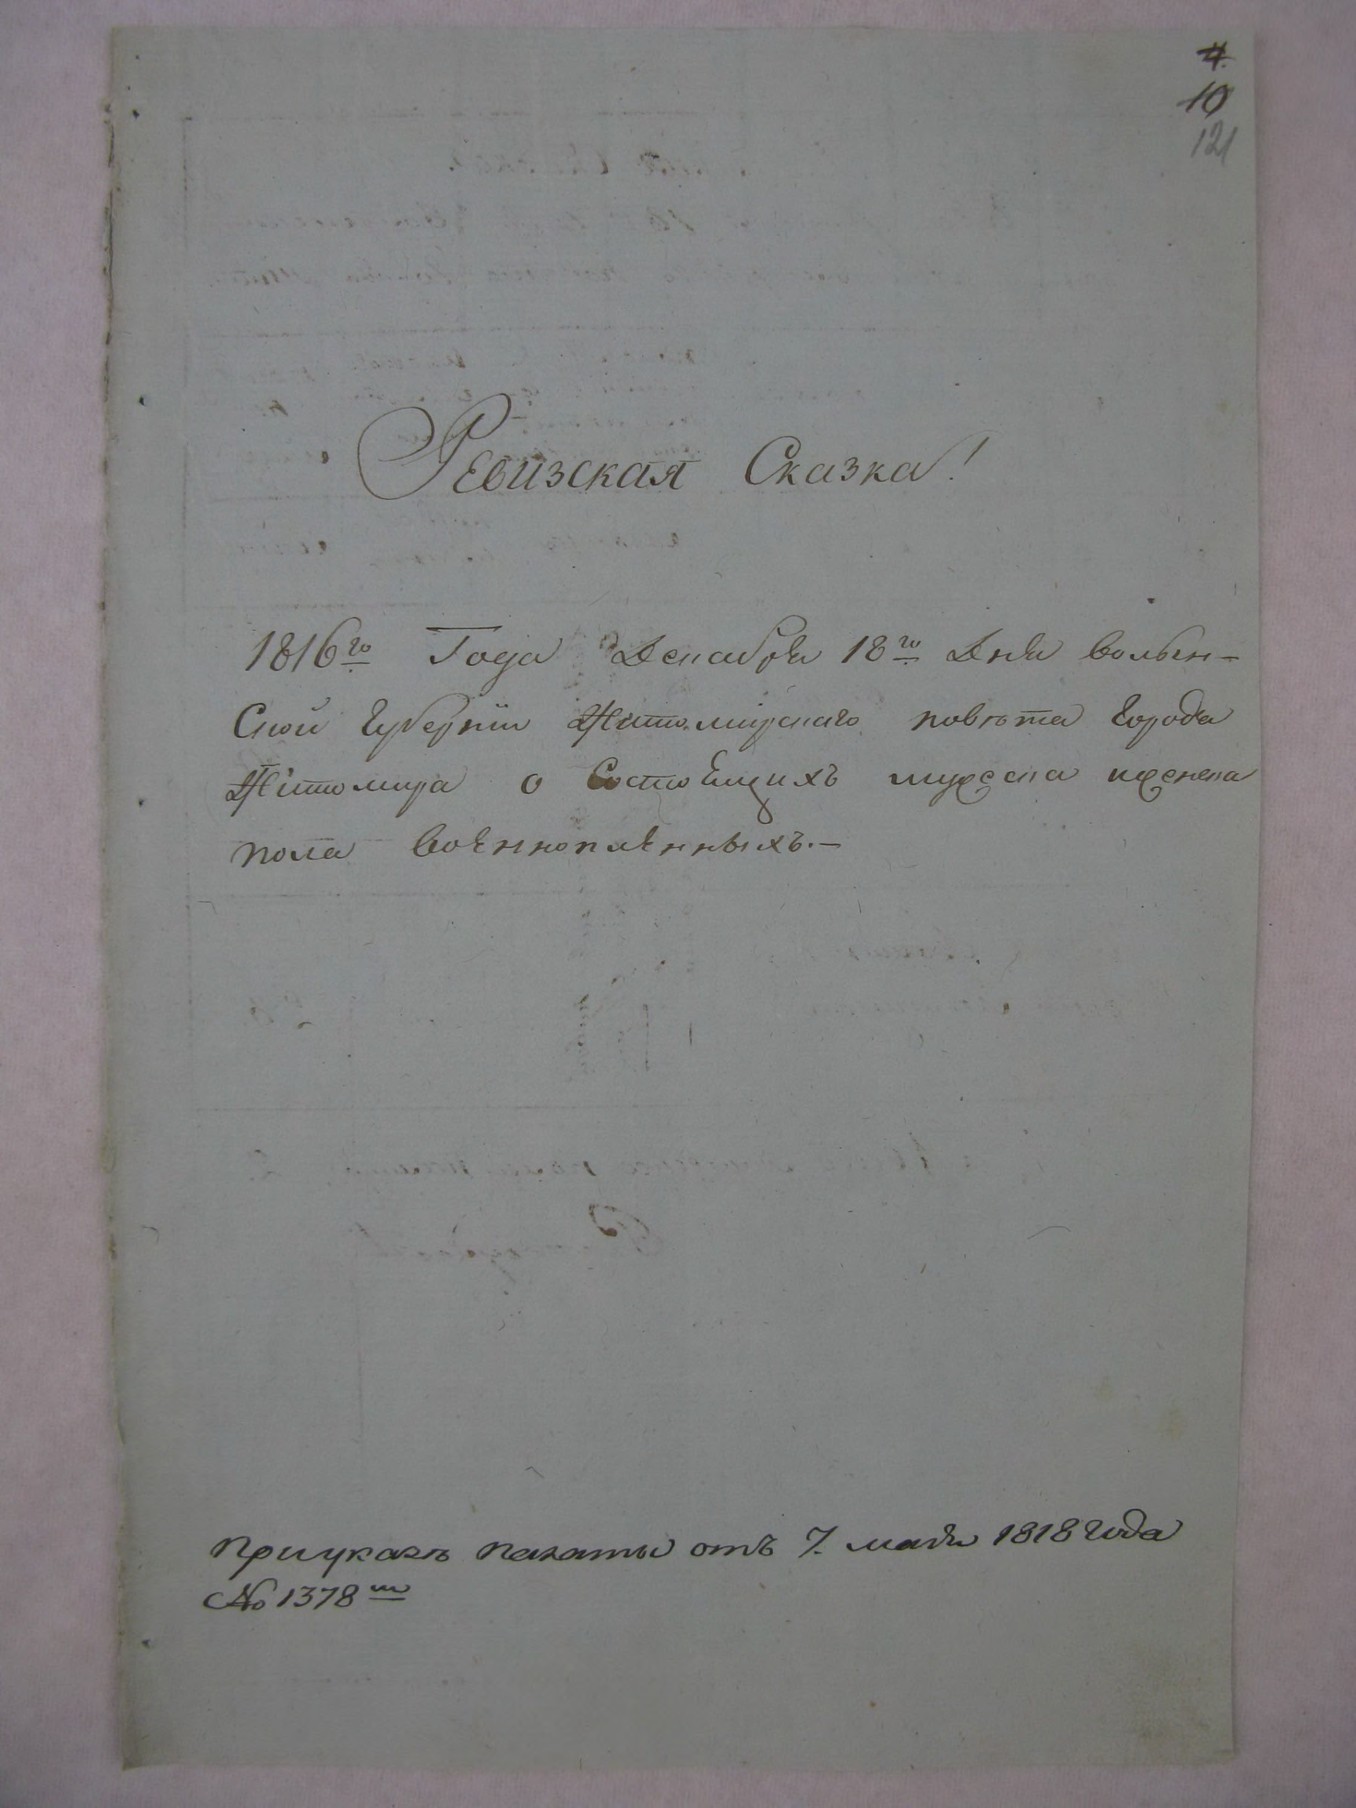 4.
10
121
Ревизская Сказка!
1816го Года Декабря 18го Дня волын-
Ской Губернии Житомирскаго повета Города
Житомира о Состоящихъ мужеска иженска
пола военнопленныхъ.—
При указе палаты отъ 7. мая 1818 года
№ 1378м